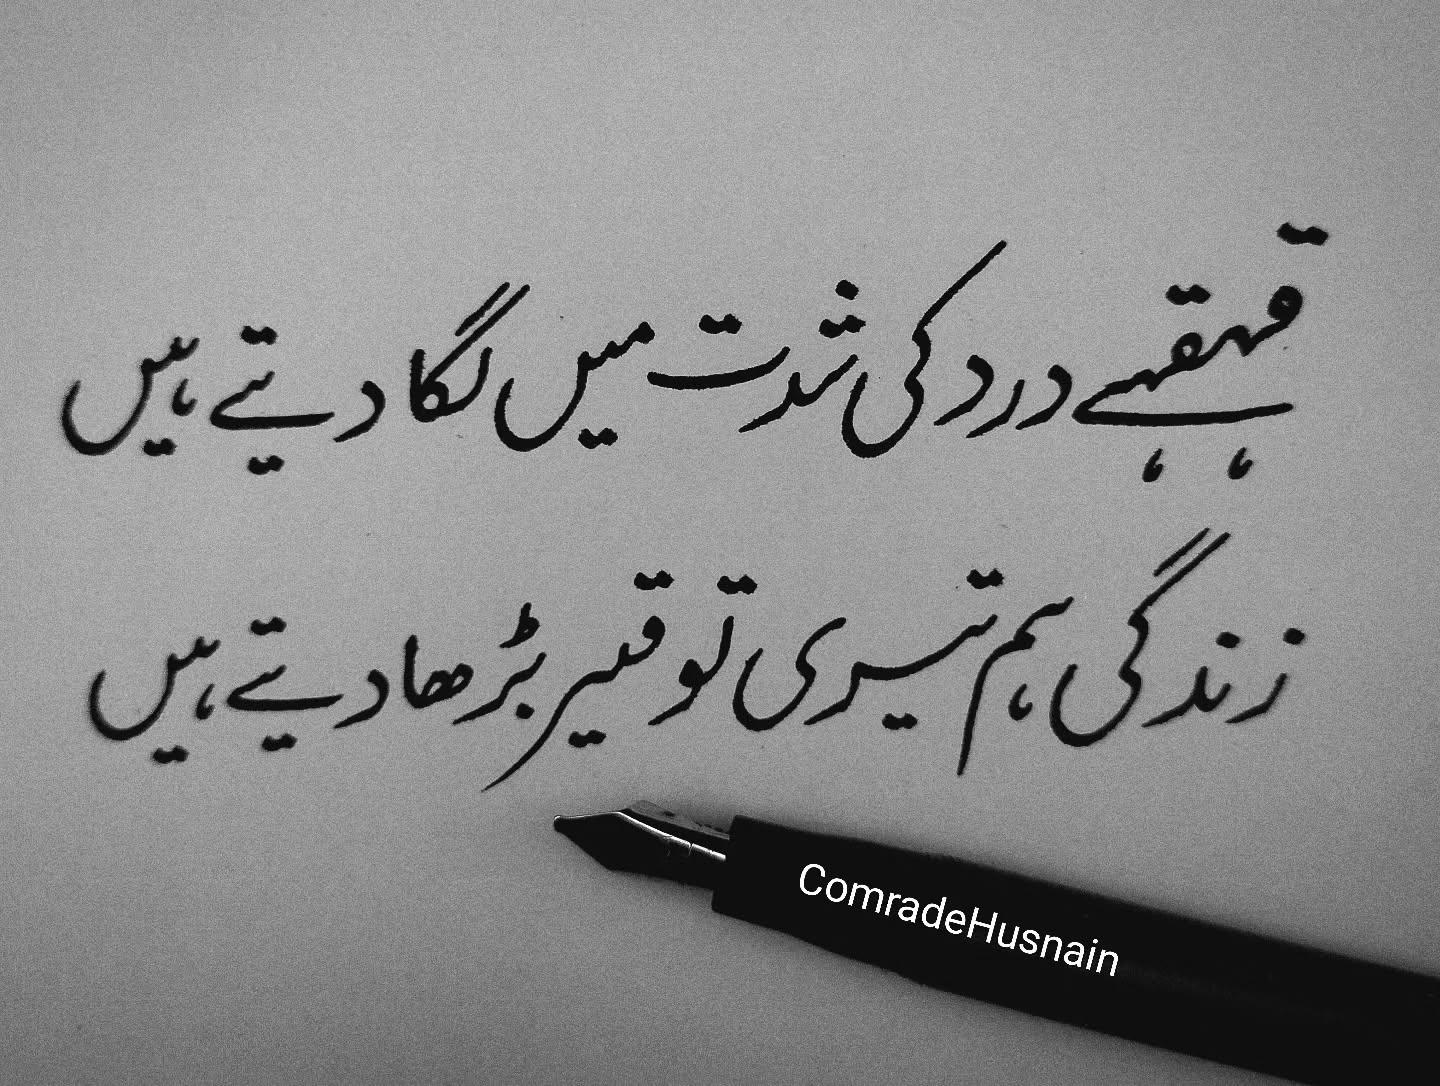 قہقہے درد کی شدت میں لگا دیتے ہیں
زندگی ہم تیری توقیر بڑھا دیتے ہیں
ComradeHusnain